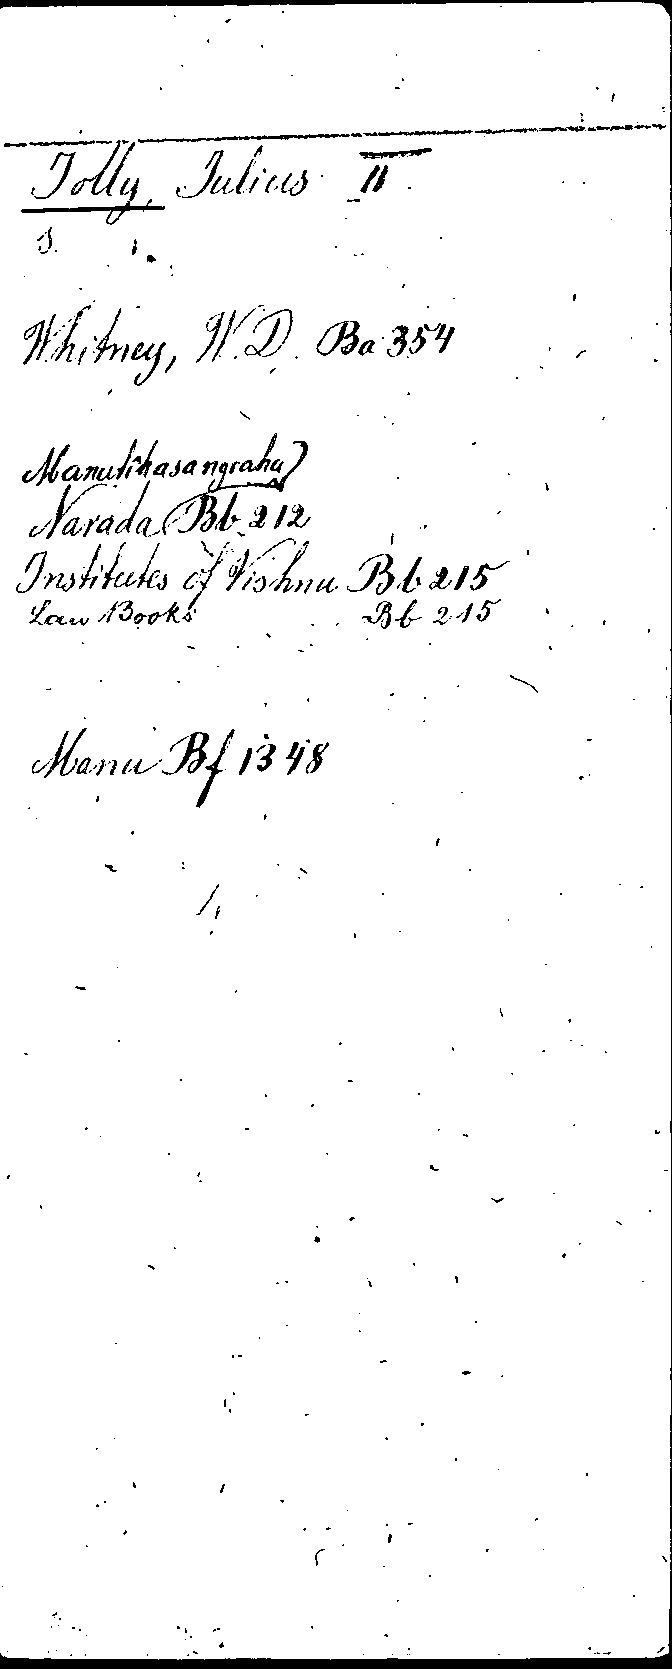 Jolly, Julius II
s.
Whitney, W. D. Ba 354
Manutîkasangraha
Narada Bb 212
Institutes of Vishnu Bb 215
Law Books Bb 215
Manu Bf 1348